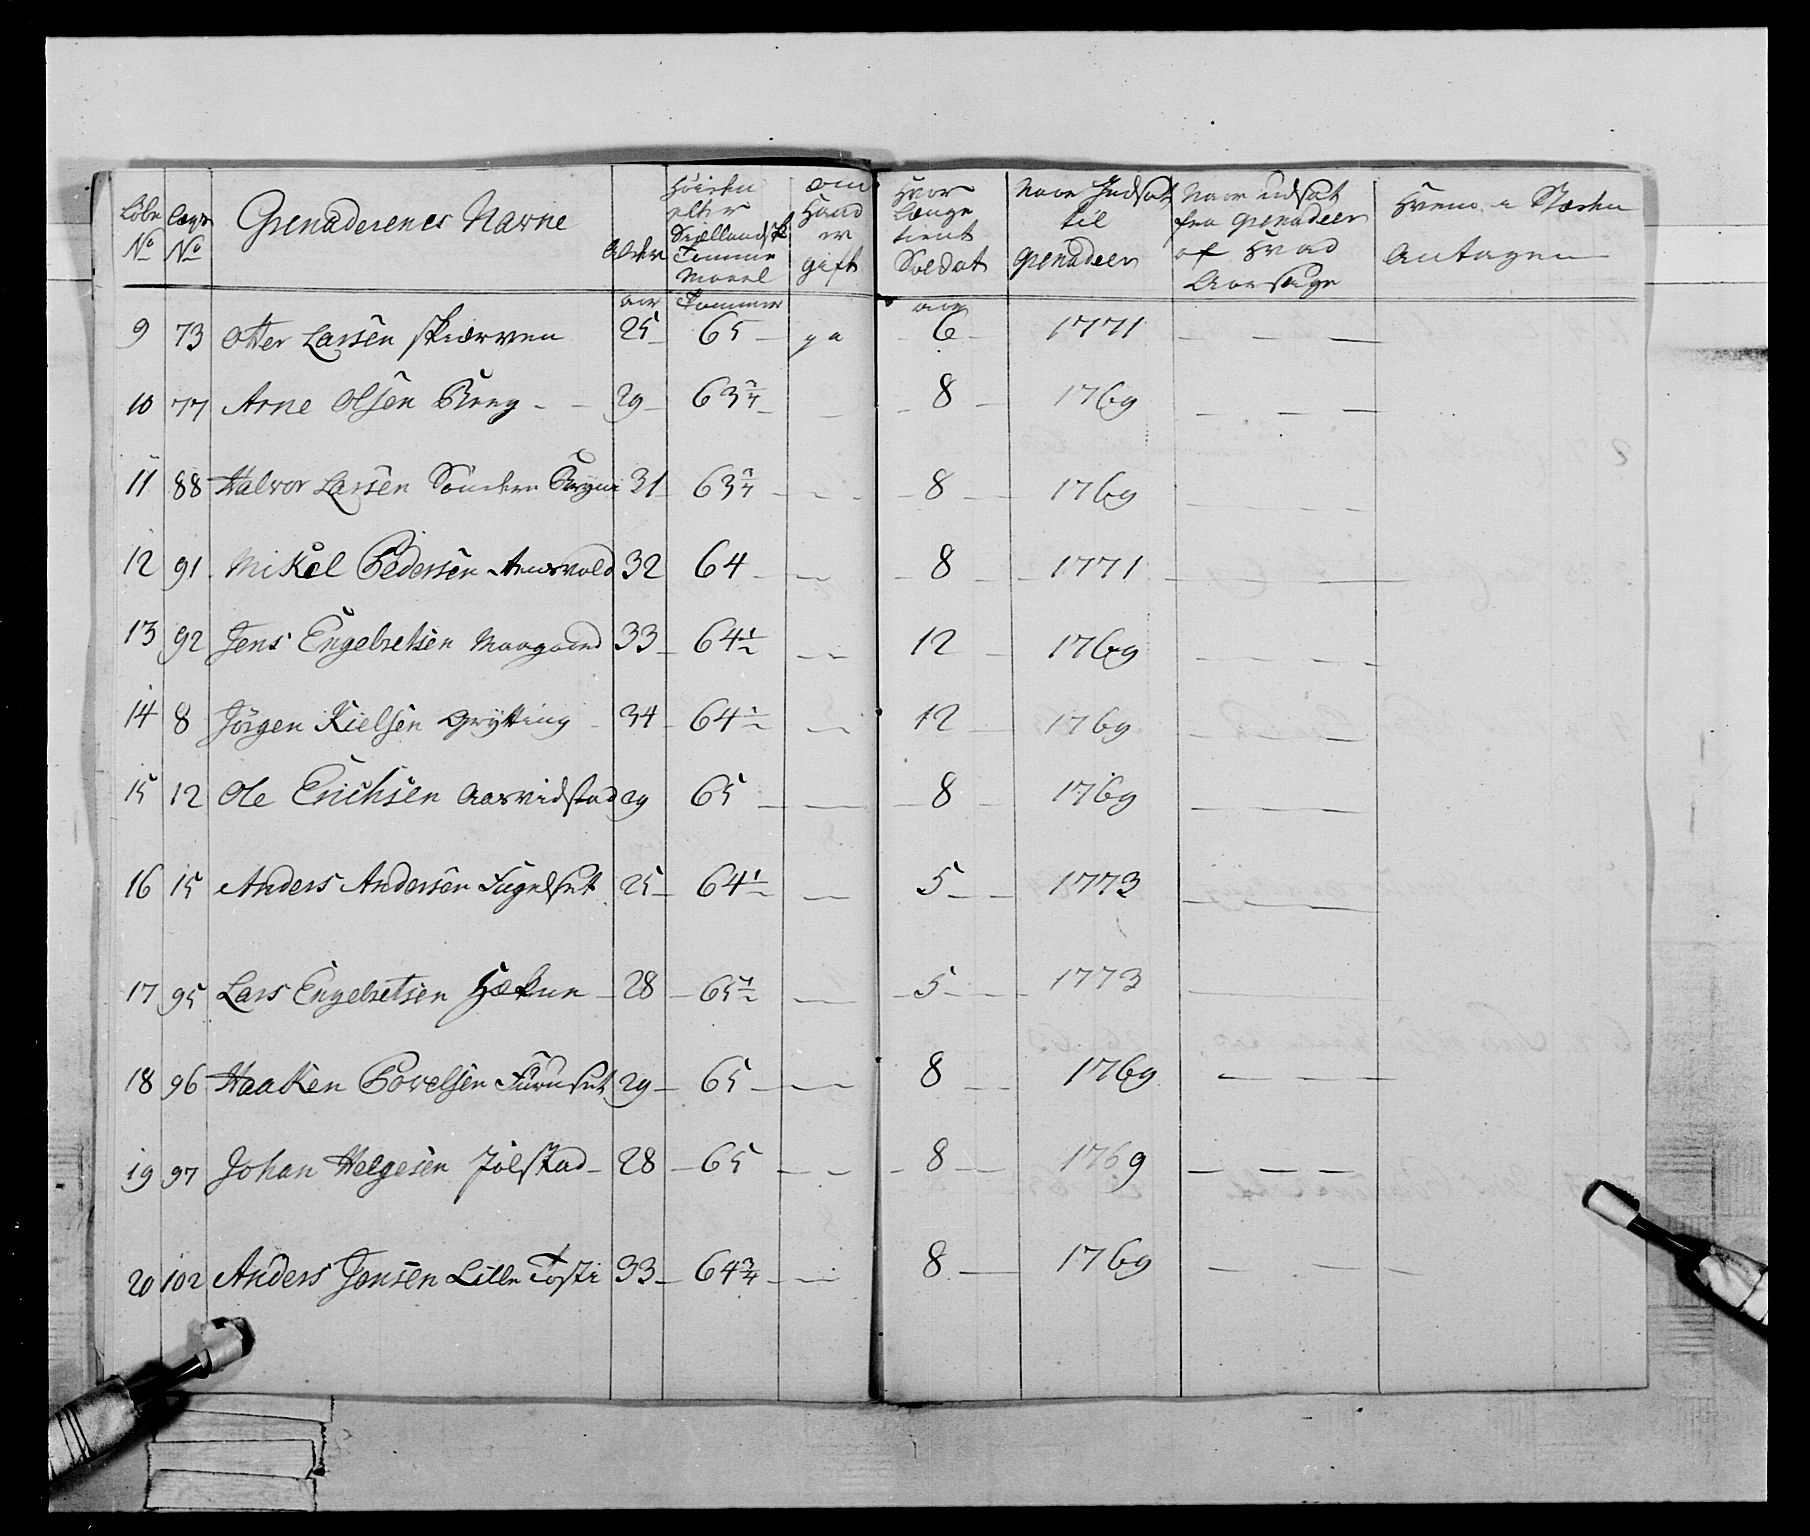 Löbe No | Lægs No | Grenaderenes Navne | Alder | Höieden efter Siællandsk Tomme Maael | om Hand er gift | Hvor Længe tient Soldat | Naar Indsat til grenadeer | Naar udsat fra grenadeer af Hvad Aarsage | Hvem i Stæden Antagen
aar | Tommer | aar
9 | 73 | Otter Larsen Skierven | 25 | 65 | ja | 6 | 1771
10 | 77 | Arne Olsen Berg | 29 | 63 3/4 | 8 | 1769
11 | 88 | Halvor Larsen Söndere | 31 | 63 3/4 | 8 | 1769
12 | 91 | Mikel Pedersen | 32 | 64 | 8 | 1771
13 | 92 | Jens Engebretsen Moagaard | 33 | 64 1/2 | 12 | 1769
14 | 8 | Jörgen Kielsen Grÿtting | 34 | 64 1/2 | 12 | 1769
15 | 12 | Ole Erichsen Aasvidstad | 29 | 65 | 8 | 1769
16 | 15 | Anders Andersen Fugelset | 25 | 64 1/2 | 5 | 1773
17 | 95 | Lars Engebretsen | 28 | 65 1/2 | 5 | 1773
18 | 96 | Haaken Povelsen Furuset | 29 | 65 | 8 | 1769
19 | 97 | Johan Helgesen Jölstad | 28 | 65 | 8 | 1769
20 | 102 | Anders Jensen Lille Tosti | 33 | 64 3/4 | 8 | 1769